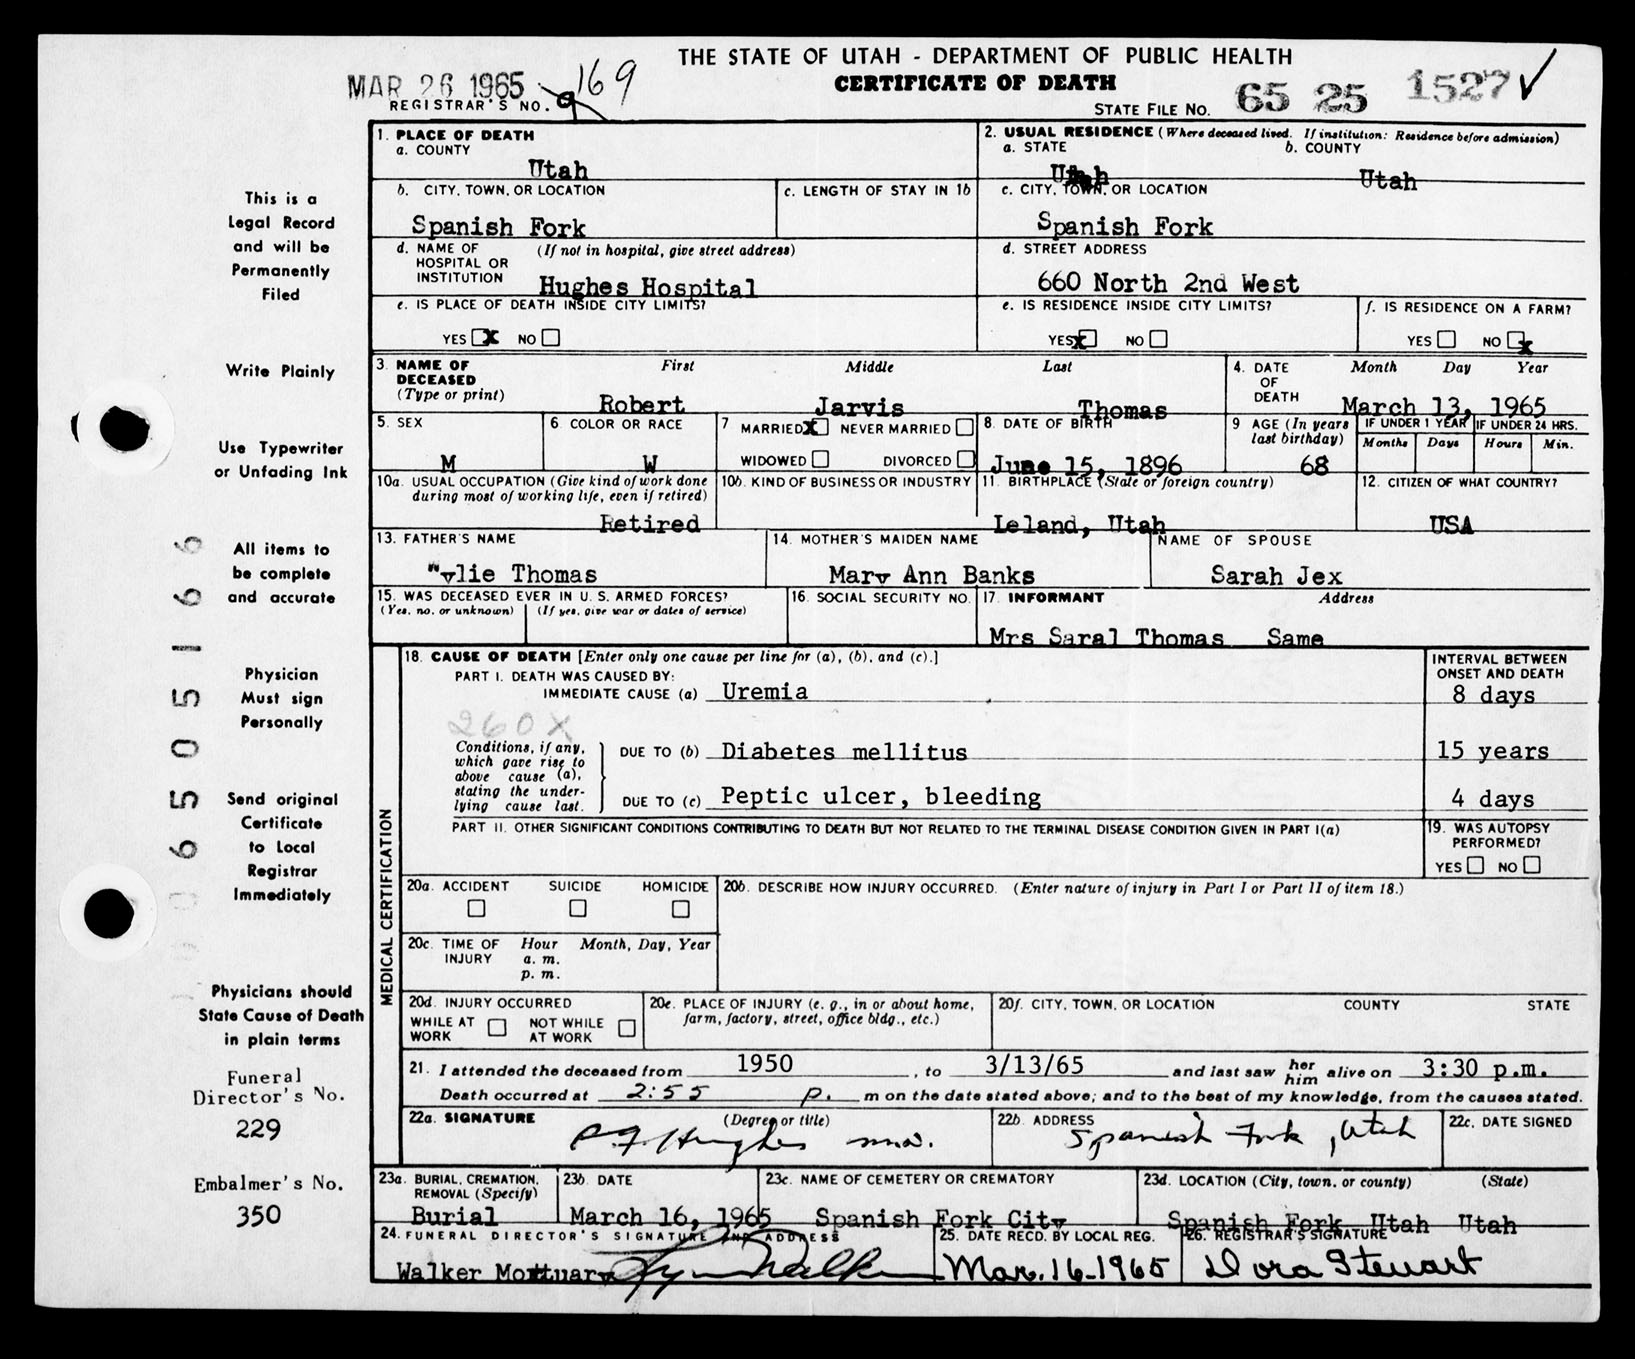 THE STATE OF UTAH - DEPARTMENT OF PUBLIC HEALTH
MAR 26 1965 169
CERTIFICATE OF DEATH
REGISTRAR'S NO.
STATE FILE NO. 65 25 1527 ✓
1. PLACE OF DEATH
a. COUNTY
Utah
2. USUAL RESIDENCE (Where deceased lived. If institution: Residence before admission)
a. STATE b. COUNTY
Utah Utah
b. CITY, TOWN, OR LOCATION c. LENGTH OF STAY IN 1b
Spanish Fork
c. CITY, TOWN, OR LOCATION
Spanish Fork
d. NAME OF (If not in hospital, give street address)
HOSPITAL OR
INSTITUTION Hughes Hospital
d. STREET ADDRESS
660 North 2nd West
e. IS PLACE OF DEATH INSIDE CITY LIMITS?
YES X NO
e. IS RESIDENCE INSIDE CITY LIMITS? f. IS RESIDENCE ON A FARM?
YES X NO YES NO X
3. NAME OF First Middle Last
DECEASED
(Type or print) Robert Jarvis Thomas
4. DATE Month Day Year
OF
DEATH March 13, 1965
5. SEX
M
6. COLOR OR RACE
W
7 MARRIED X NEVER MARRIED
WIDOWED DIVORCED
8. DATE OF BIRTH
June 15, 1896
9 AGE (In years
last birthday)
68
IF UNDER 1 YEAR IF UNDER 24 HRS.
Months Days Hours Min.
10a. USUAL OCCUPATION (Give kind of work done
during most of working life, even if retired)
Retired
10b. KIND OF BUSINESS OR INDUSTRY
11. BIRTHPLACE (State or foreign country)
Leland, Utah
12. CITIZEN OF WHAT COUNTRY?
USA
13. FATHER'S NAME
Wylie Thomas
14. MOTHER'S MAIDEN NAME
Mary Ann Banks
NAME OF SPOUSE
Sarah Jex
15. WAS DECEASED EVER IN U. S. ARMED FORCES?
(Yes, no, or unknown) (If yes, give war or dates of service)
16. SOCIAL SECURITY NO.
17. INFORMANT Address
Mrs Saral Thomas Same
18. CAUSE OF DEATH [Enter only one cause per line for (a), (b), and (c).]
PART I. DEATH WAS CAUSED BY:
IMMEDIATE CAUSE (a) Uremia
INTERVAL BETWEEN
ONSET AND DEATH
8 days
260X
Conditions, if any,
which gave rise to
above cause (a),
stating the under-
lying cause last.
DUE TO (b) Diabetes mellitus 15 years
DUE TO (c) Peptic ulcer, bleeding 4 days
PART II. OTHER SIGNIFICANT CONDITIONS CONTRIBUTING TO DEATH BUT NOT RELATED TO THE TERMINAL DISEASE CONDITION GIVEN IN PART I(a)
19. WAS AUTOPSY
PERFORMED?
YES NO
MEDICAL CERTIFICATION
20a. ACCIDENT SUICIDE HOMICIDE
20b. DESCRIBE HOW INJURY OCCURRED. (Enter nature of injury in Part I or Part II of item 18.)
20c. TIME OF Hour Month, Day, Year
INJURY a. m.
p. m.
20d. INJURY OCCURRED
WHILE AT NOT WHILE
WORK AT WORK
20e. PLACE OF INJURY (e. g., in or about home,
farm, factory, street, office bldg., etc.)
20f. CITY, TOWN, OR LOCATION COUNTY STATE
21. I attended the deceased from 1950, to 3/13/65 and last saw her him alive on 3:30 p.m.
Death occurred at 2:55 p. m on the date stated above; and to the best of my knowledge, from the causes stated.
22a. SIGNATURE (Degree or title)
Hughes m.d.
22b. ADDRESS
Spanish Fork, Utah
22c. DATE SIGNED
23a. BURIAL, CREMATION,
REMOVAL (Specify)
Burial
23b. DATE
March 16, 1965
23c. NAME OF CEMETERY OR CREMATORY
Spanish Fork City
23d. LOCATION (City, town, or county) (State)
Spanish Fork Utah Utah
24. FUNERAL DIRECTOR'S SIGNATURE AND ADDRESS
Walker Mortuary
25. DATE RECD. BY LOCAL REG.
Mar. 16-1965
26. REGISTRAR'S SIGNATURE
Dora Stewart
This is a
Legal Record
and will be
Permanently
Filed
Write Plainly
Use Typewriter
or Unfading Ink
All items to
be complete
and accurate
Physician
Must sign
Personally
Send original
Certificate
to Local
Registrar
Immediately
Physicians should
State Cause of Death
in plain terms
Funeral
Director's No.
229
Embalmer's No.
350